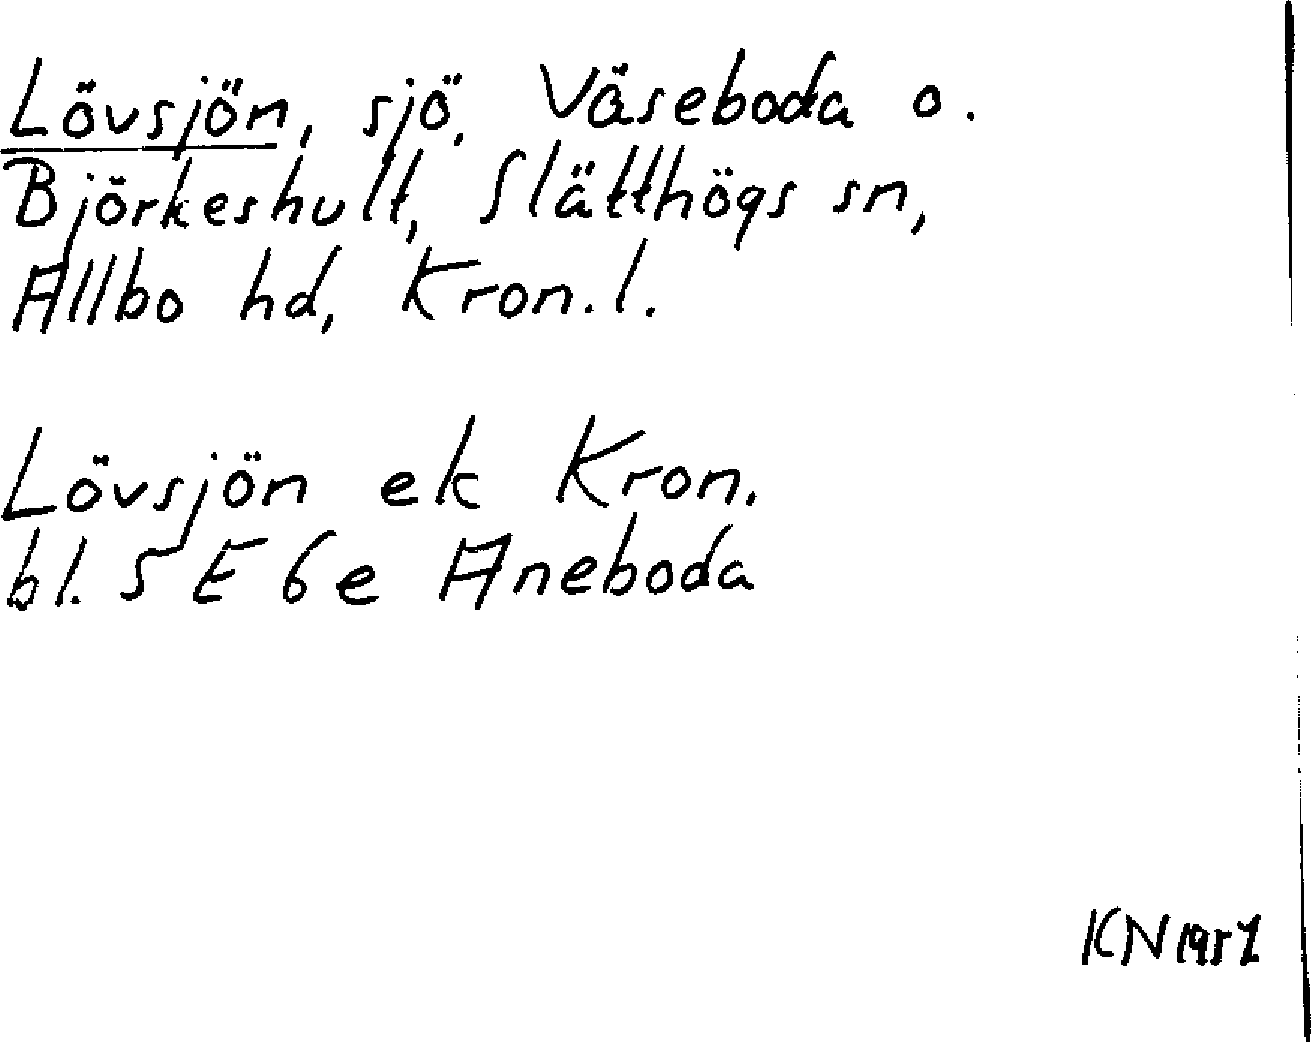 Lövsjön, sjö, Väseboda o.
Björkeshult, Slätthögs sn,
Allbo hd, Kron.l.
Lövsjön ek Kron.
bl. 5 E 6e Aneboda
KN 1957